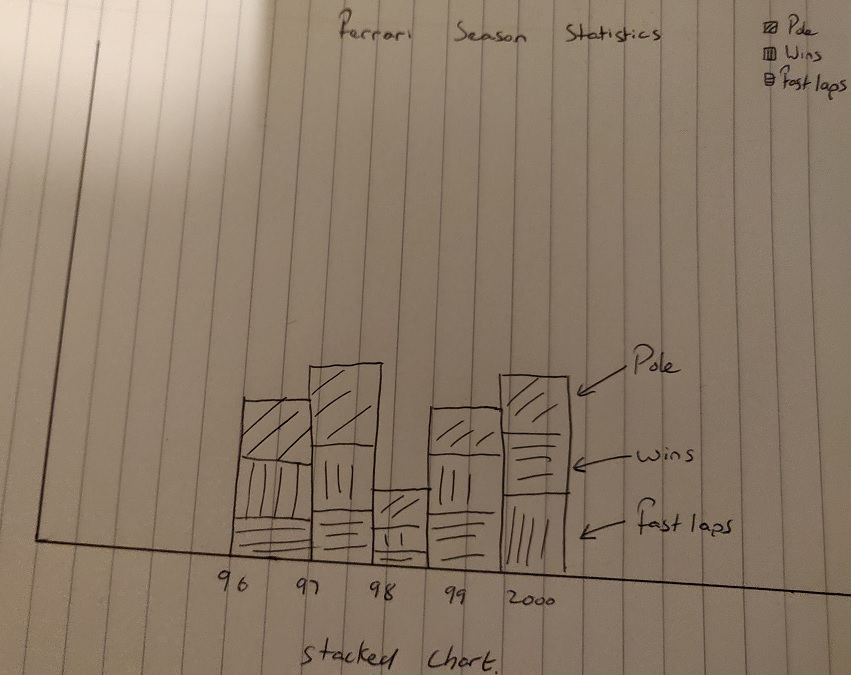 Ferrari Season Statistics
Pole
Wins
Fast laps
Pole
wins
Fast laps
96 97 98 99 2000
Stacked Chart.